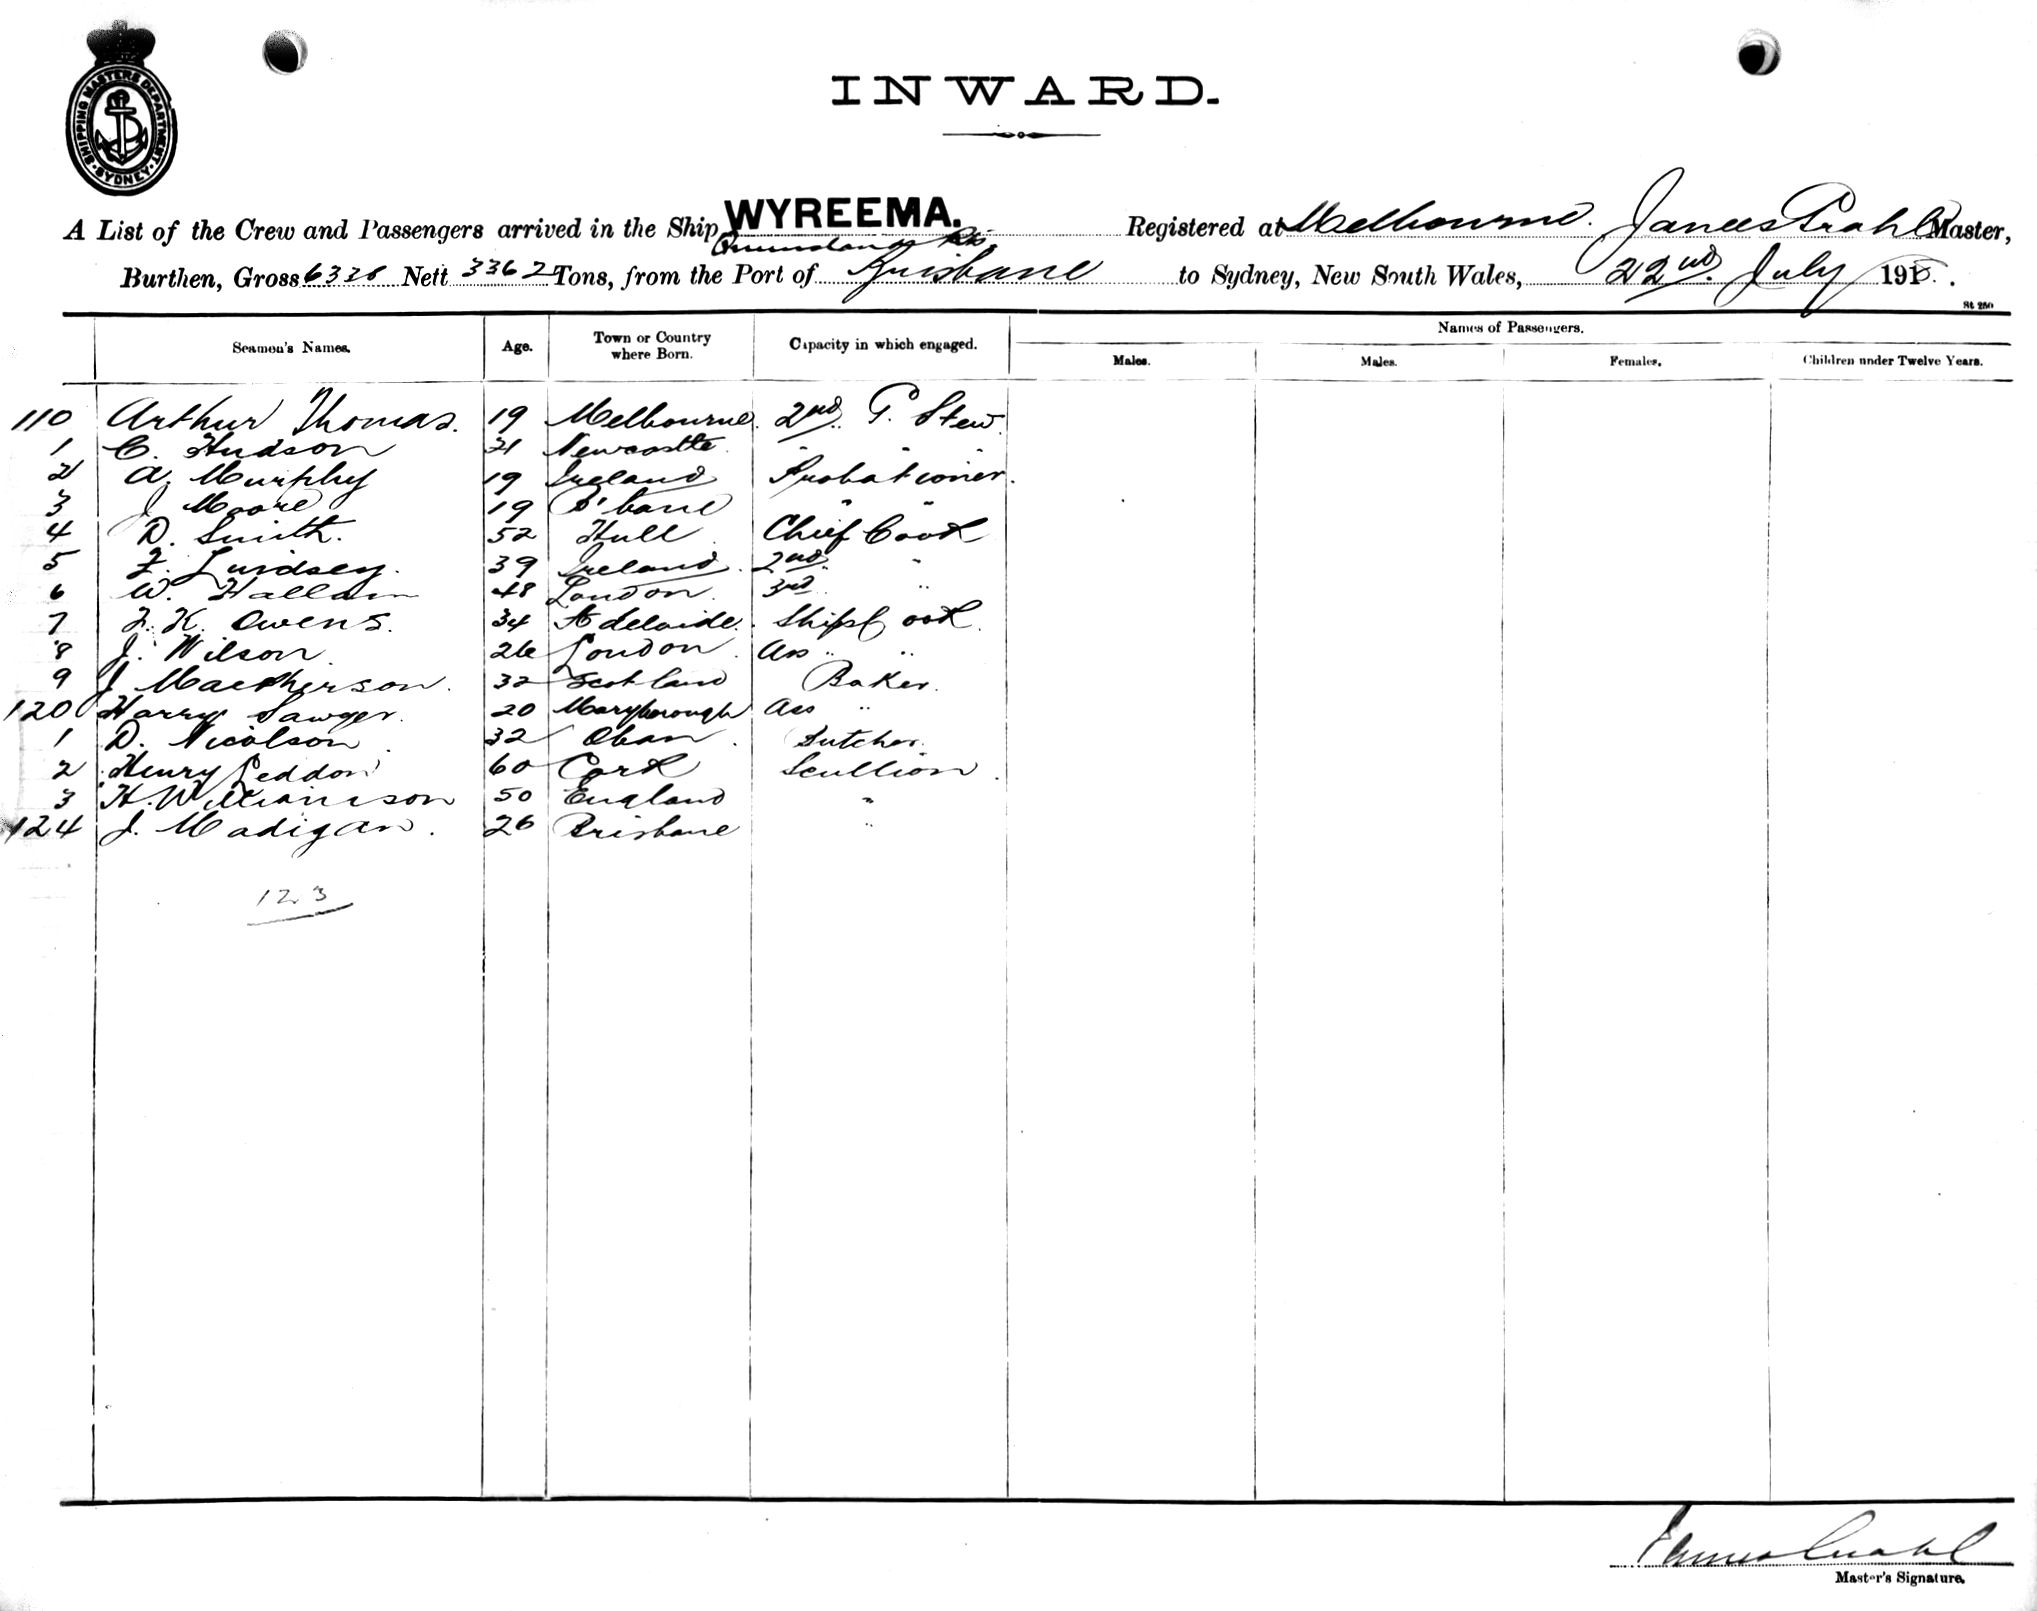 SHIPPING MASTERS DEPARTMENT
SYDNEY
INWARD.
A List of the Crew and Passengers arrived in the Ship WYREEMA. Registered at Melbourne. James Prahl Master,
Burthen, Gross 6338 Nett 3362 Tons, from the Port of Brisbane to Sydney, New South Wales, 22nd. July 191
St 250
Seamen's Names. Age. Town or Country where Born. Capacity in which engaged. Names of Passengers.
Males. Males. Females. Children under Twelve Years.
110 Arthur Thomas. 19 Melbourne. 2nd. P. Stew.
1 C. Hudson 21 Newcastle " "
2 A. Murphy 19 Ireland Probationer.
3 J Moore 19 B'bane " "
4 D. Smith. 52 Hull Chief Cook
5 F. Lindsey. 39 Ireland. 2nd. "
6 W. Hallam 48 London. 3rd. "
7 F. K. Owens. 34 Adelaide. Ships Cook.
8 J. Wilson. 26 London. Ass " "
9 J Macpherson. 32 Scotland Baker.
120 Harry Sawyer. 20 Maryborough Ass "
1 D. Nicolson. 32 Oban. Butcher.
2 Henry Leddon 60 Cork Scullion.
3 H. Williamson 50 England "
124 J. Madigan. 26 Brisbane "
123
James Prahl
Master's Signature.